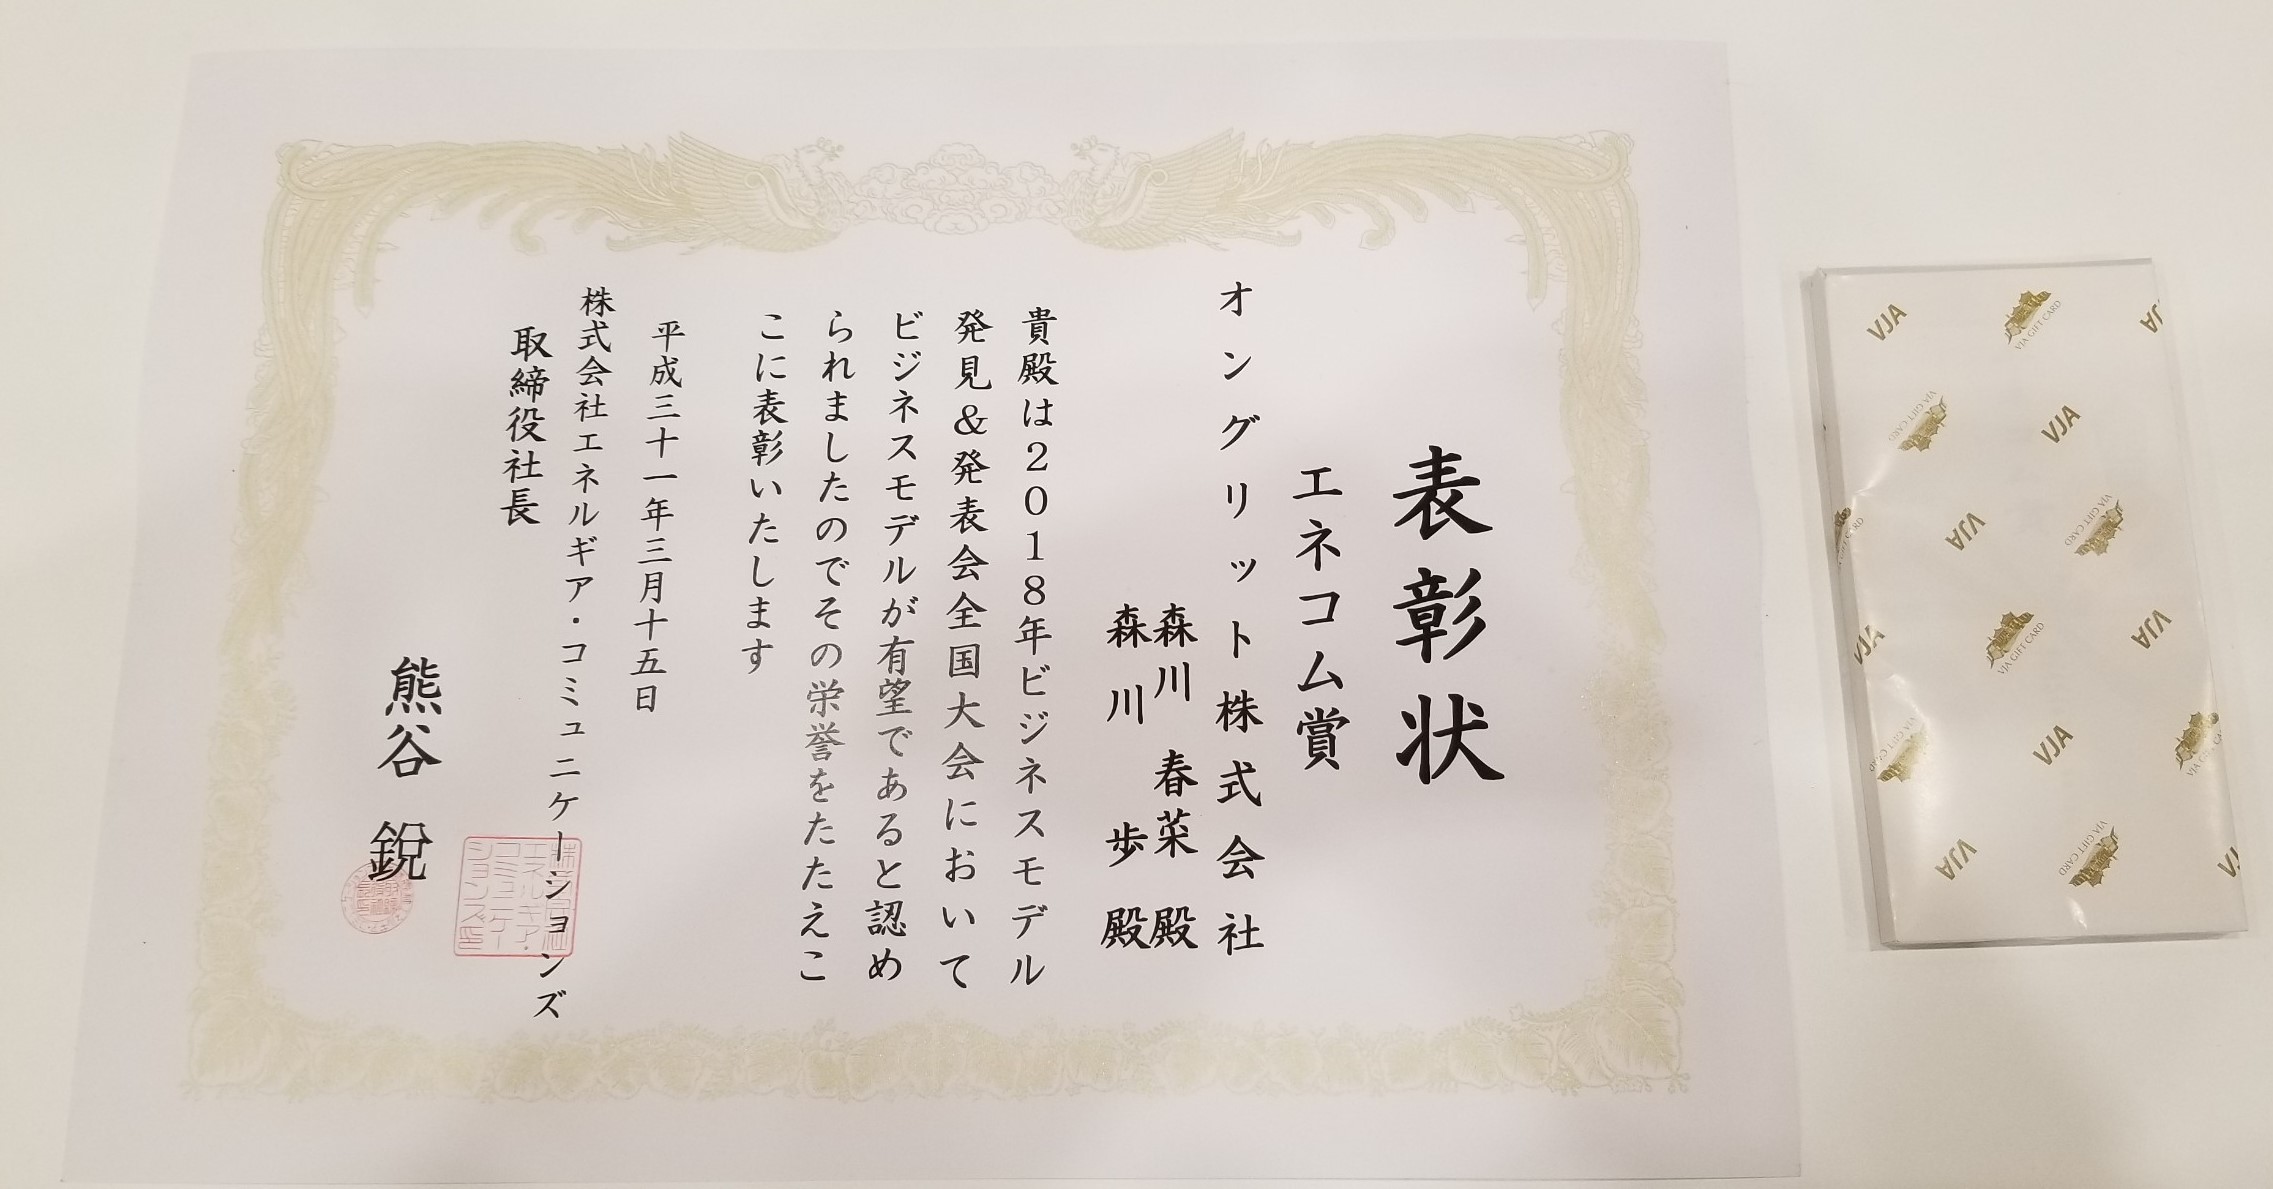 表彰状
エネコム賞
オングリット株式会社
森川 春菜 殿
森川 歩 殿
貴殿は2018年ビジネスモデル
発見&発表会全国大会において
ビジネスモデルが有望であると認め
られましたのでその栄誉をたたえこ
こに表彰いたします
平成三十一年三月十五日
株式会社エネルギア・コミュニケーションズ
取締役社長
熊谷 鋭
株式会社
エネルギア・
コミュニケー
ションズ印
VJA
VJA GIFT CARD
VJA
VJA GIFT CARD
VJA
VJA
VJA GIFT CARD
VJA GIFT CARD
VJA
VJA GIFT CARD
VJA
VJA GIFT CARD
VJA
VJA GIFT CARD
VJA
VJA GIFT CARD
VJA